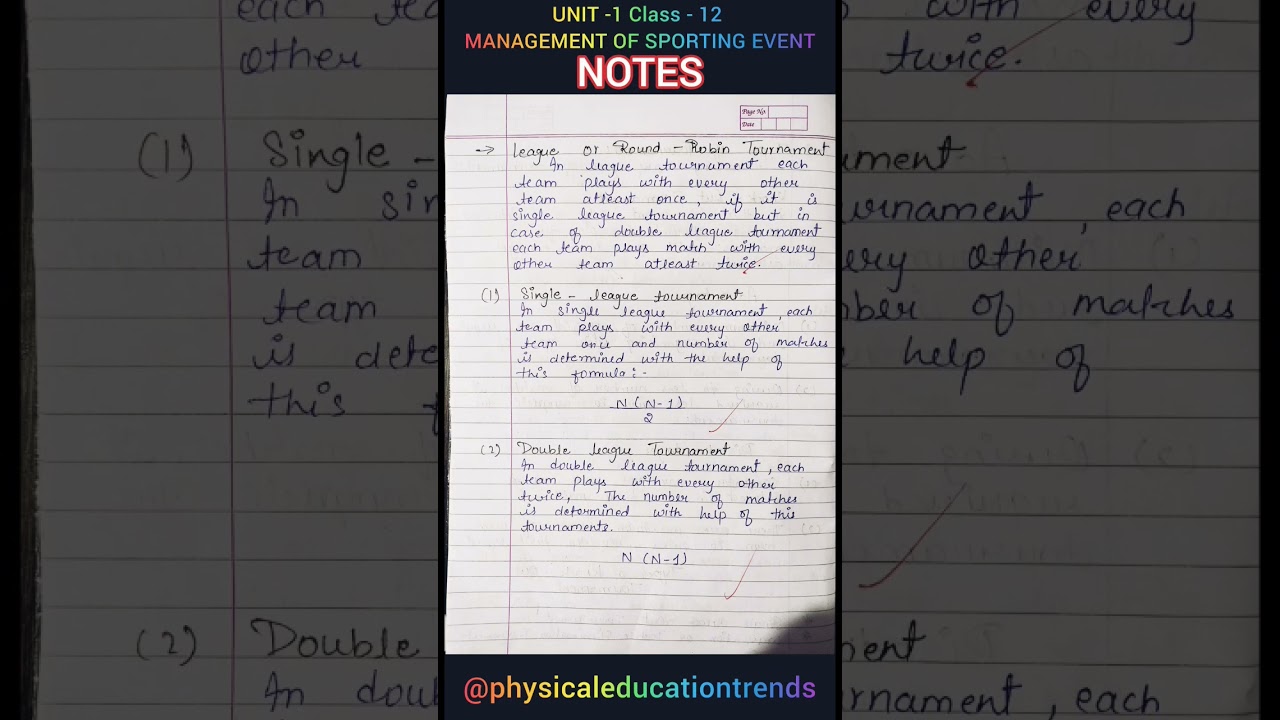 UNIT -1 Class - 12
MANAGEMENT OF SPORTING EVENT
NOTES
Page No.
Date
→ League or Round - Robin Tournament
In league tournament each
team plays with every other
team atleast once, if it is
single league tournament but in
case of double league tournament
each team plays match with every
other team atleast twice.
(1) Single - league tournament
In single league tournament, each
team plays with every other
team once and number of matches
is determined with the help of
this formula:-
N (N-1)
2
(2) Double league Tournament
In double league tournament, each
team plays with every other
twice, The number of matches
is determined with help of this
tournaments.
N (N-1)
@physicaleducationtrends
each tea
other
(1) Single -
In sin
team
team
is dete
this
(2) Double
In doul
with every
twice.
ment
urnament, each
ery other
ber of matches
help of
ent
rnament, each